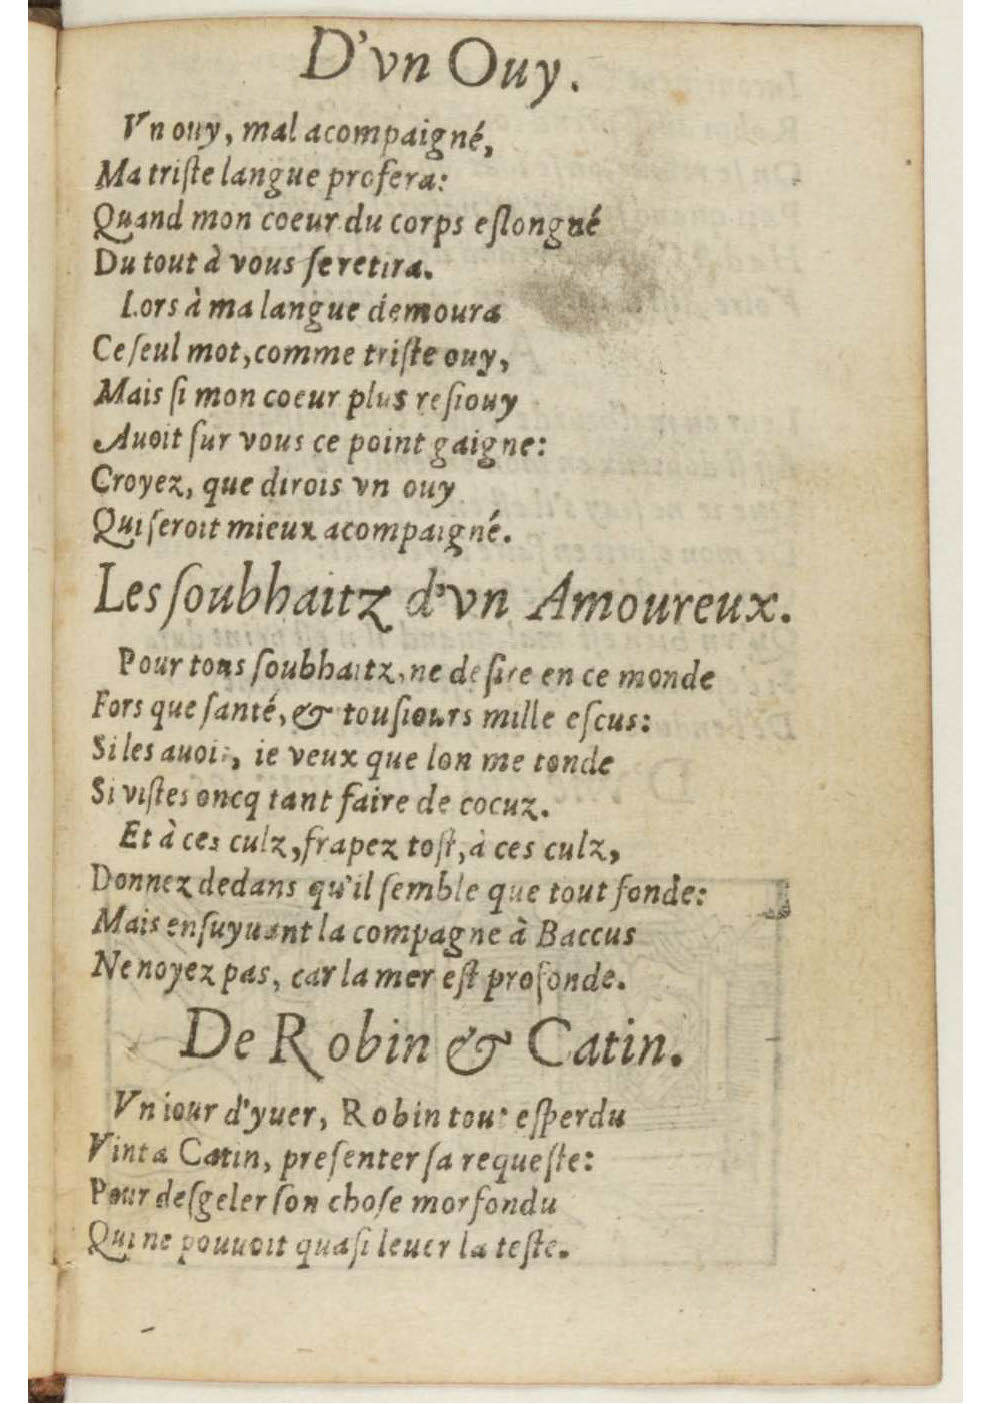 D'vn Ouy.
Vn ouy, mal acompaigné,
Ma triſte langue profera:
Quand mon coeur du corps eſlongné
Du tout à vous ſe retira.
Lors à ma langue demoura
Ce ſeul mot, comme triſte ouy,
Mais ſi mon coeur plus reſiouy
Auoit ſur vous ce point gaigne:
Croyez, que dirois vn ouy
Qui ſeroit mieux acompaigné.
Les ſoubhaitz d'vn Amoureux.
Pour tous ſoubhaitz, ne deſire en ce monde
Fors que ſanté, & touſiours mille eſcus:
Si les auois, ie veux que lon me tonde
Si viſtes oncq tant faire de cocuz.
Et à ces culz, frapez toſt, à ces culz,
Donnez dedans qu'il ſemble que tout fonde:
Mais enſuyuant la compagne à Baccus
Ne noyez pas, car la mer eſt profonde.
De Robin & Catin.
Vn iour d'yuer, Robin tout eſperdu
Vint a Catin, preſenter ſa requeſte:
Pour deſgeler ſon choſe morfondu
Qui ne pouuoit quaſi leuer la teſte.